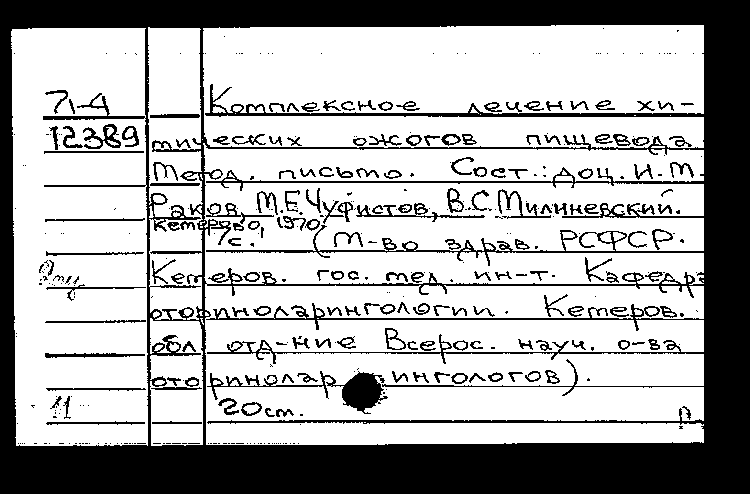 71-4 Комплексное лечение хи-
12389 мических ожогов пищевода.
Метод. письмо. Сост.: доц. И.М.
Раков, М.Е. Чуфистов, В.С. Милиневский.
Кемерово, 1970.
7с. (М-во здрав. РСФСР.
Кемеров. гос. мед. ин-т. Кафедра
оториноларингологии. Кемеров.
обл. отд-ние Всерос. науч. о-ва
оторинолар ингологов).
11 20 см.